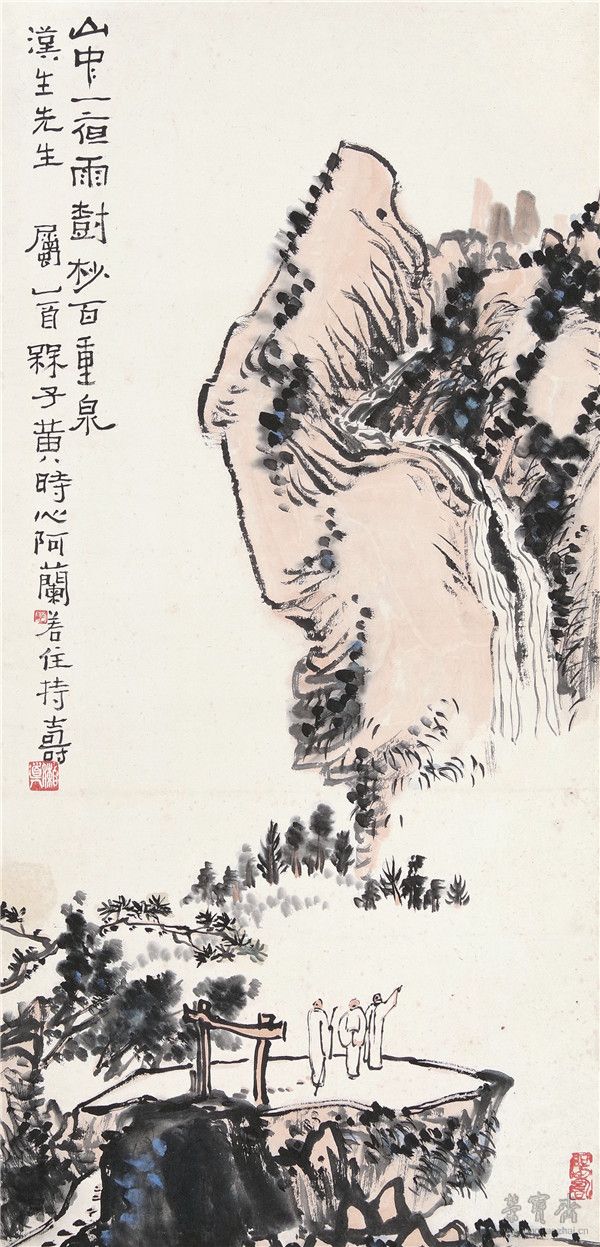 山中一夜雨樹杪百重泉
漢生先生 屬 槑子黃時心阿蘭若住持壽
榮寶齋